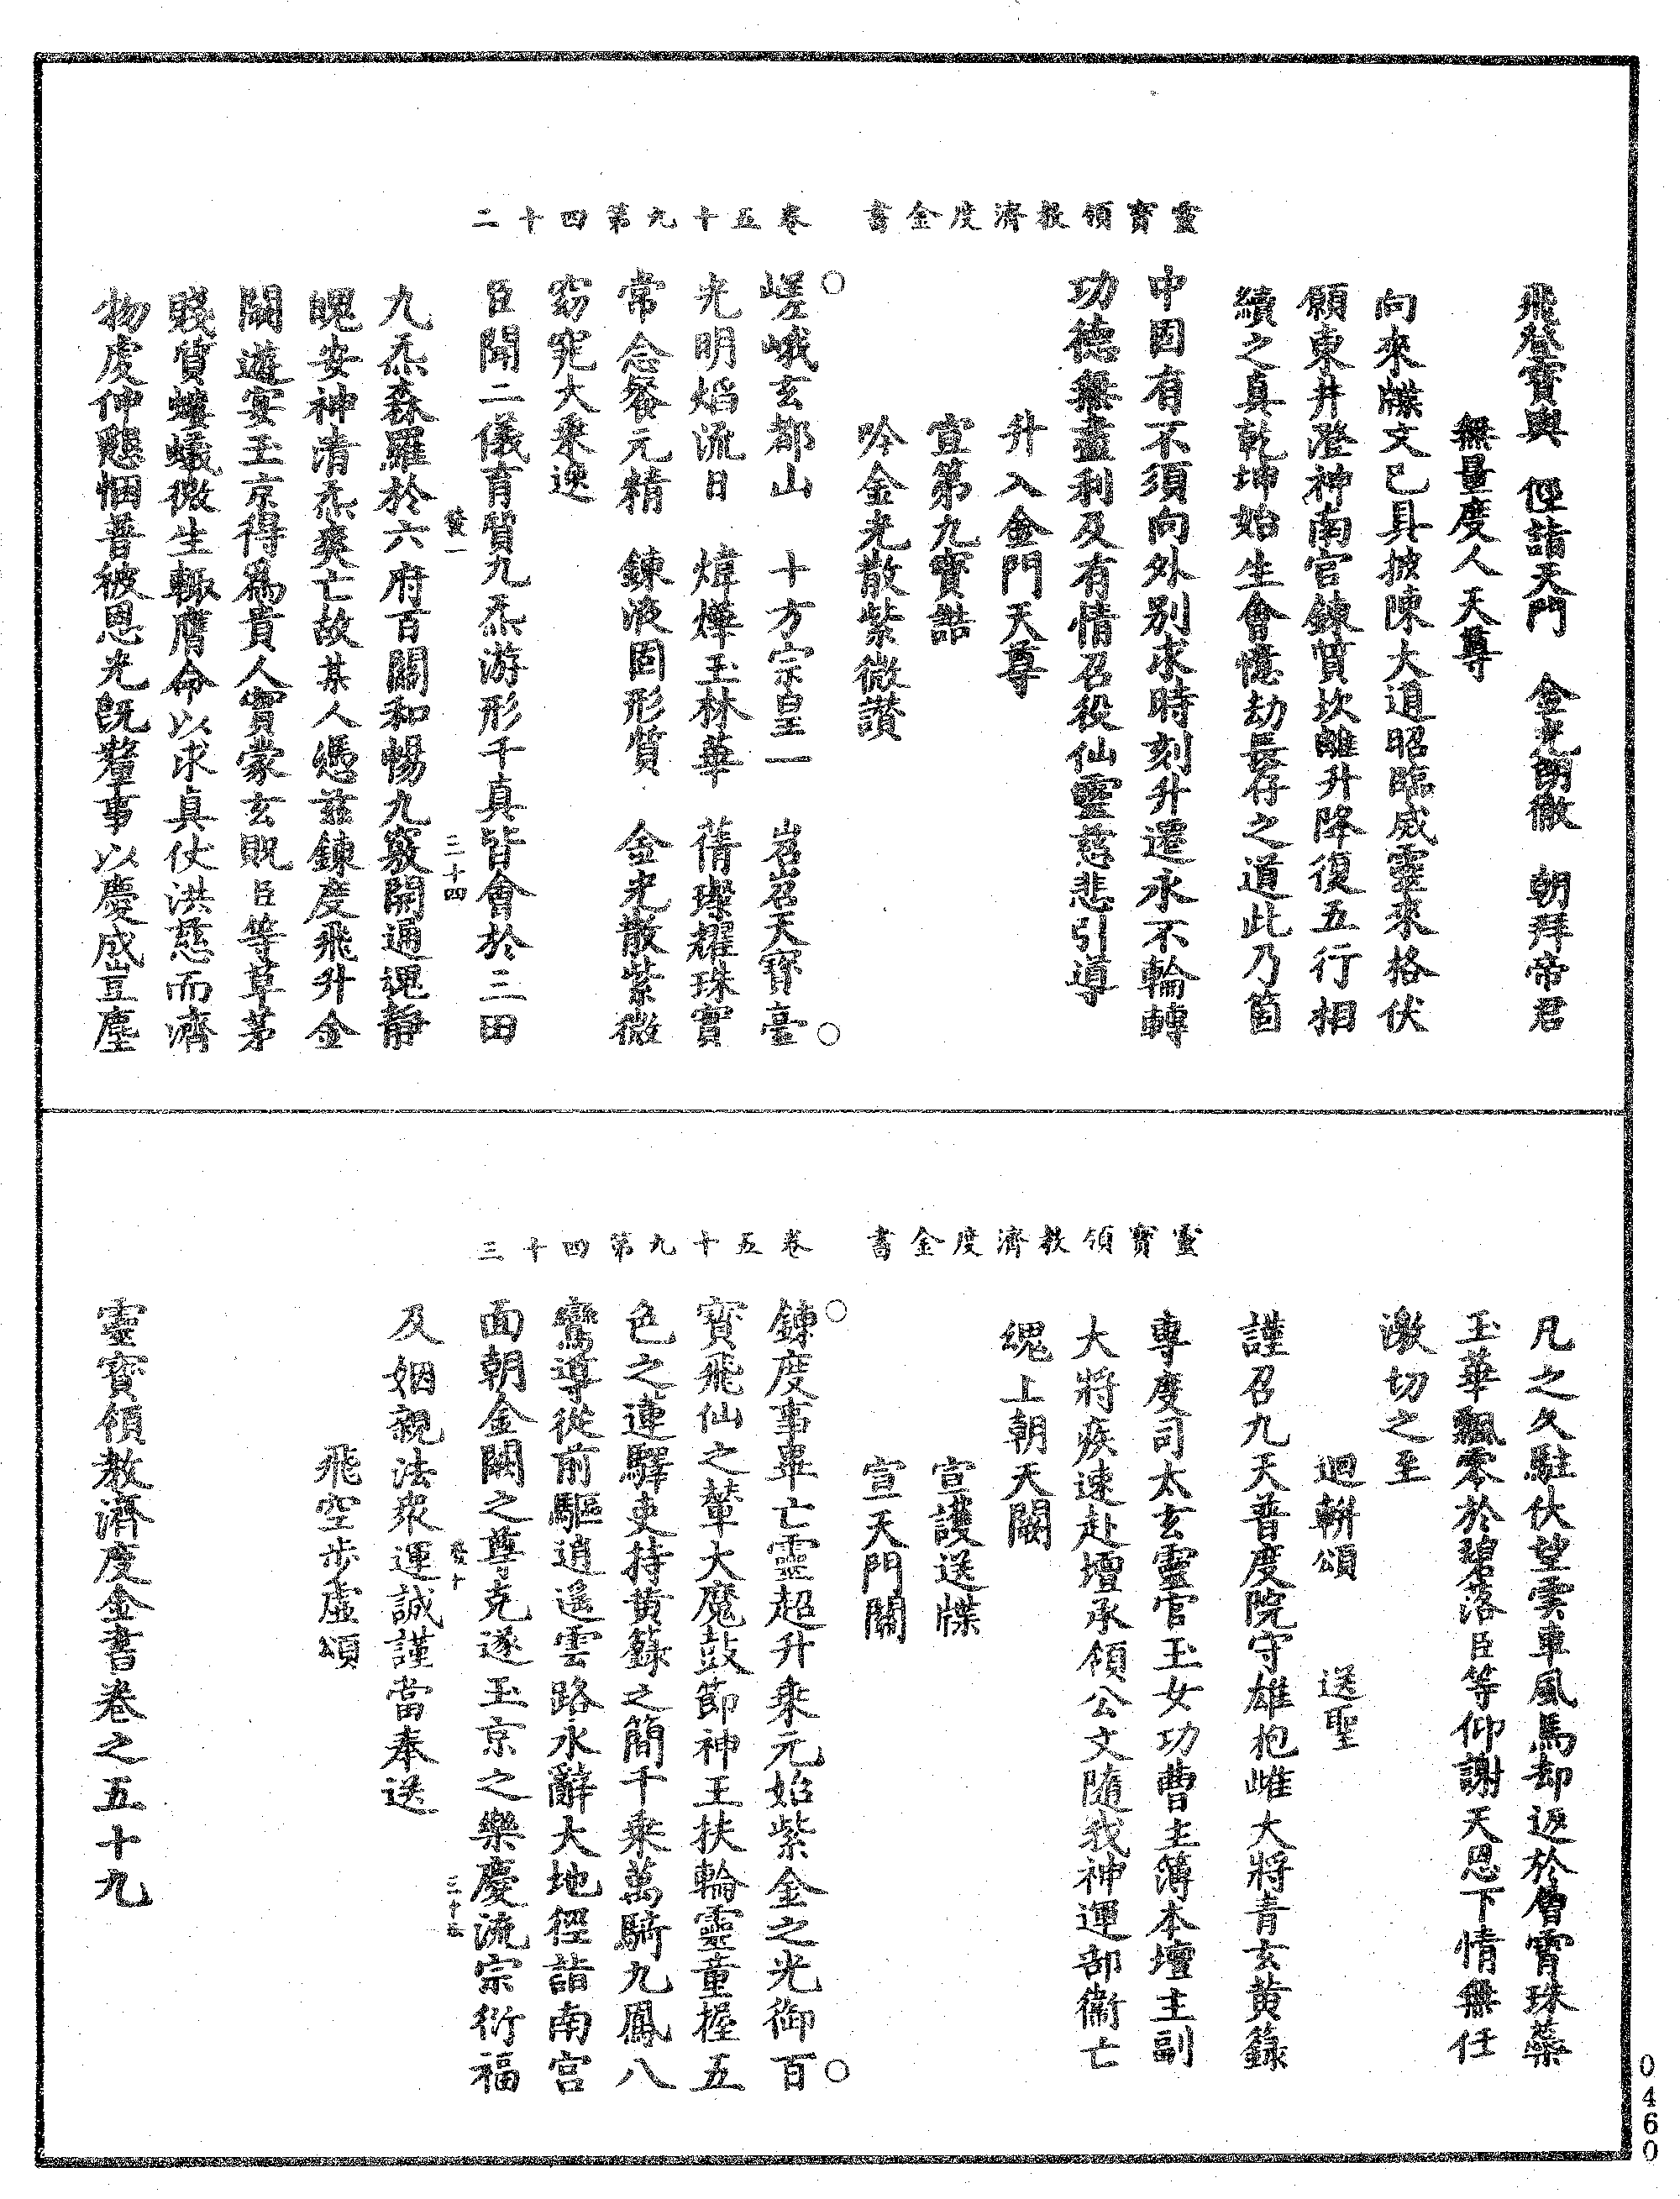 靈寶領教濟度金書　卷五十九第四十二
飛登寶輿　徑詣天門　金光朗徹　朝拜帝君
無量度人天尊
向來牒文已具披陳大道昭臨威靈來格伏
願東井澄神南宮鍊質坎離升降復五行相
續之真乾坤始生會億劫長存之道此乃箇
中固有不須向外別求時刻升遷永不輪轉
功德無盡利及有情召役仙靈慈悲引導
升入金門天尊
宣第九寶誥
吟金光散紫微讚
○嵯峨玄都山　十方宗皇一　岧岧天寶臺○
光明焰流日　煒燁玉林華　蒨璨耀珠實
常念餐元精　鍊液固形質　金光散紫微
窈窕大乘逸
臣聞二儀育質九炁游形千真皆會於三田
發一　三十四
九炁森羅於六府百關和暢九竅開通魂靜
魄安神清炁爽亡故某人憑茲鍊度飛升金
闕遊宴玉京得為貴人實蒙玄貺臣等草茅
賤質螻蟻微生輒膺命以求真仗洪慈而濟
物虔伸懇悃普被恩光既釐事以慶成豈塵
靈寶領教濟度金書　卷五十九第四十三
凡之久駐伏望雲車風馬却返於層霄珠蘂
玉華飄零於碧落臣等仰謝天恩下情無任
激切之至
迴軿頌　送聖
謹召九天普度院守雄抱雌大將青玄黄籙
專度司太玄靈官玉女功曹主簿本壇主副
大將疾速赴壇承領公文隨我神運部衛亡
魂上朝天闕
宣護送牒
宣天門關
○鍊度事畢亡靈超升乘元始紫金之光御百○
寶飛仙之輦大魔鼓節神王扶輪靈童握五
色之連驛吏持黄籙之簡千乘萬騎九鳳八
鸞導從前驅逍遙雲路永辭大地徑詣南宮
面朝金闕之尊克遂玉京之樂慶流宗衍福
發十　三十五
及姻親法衆運誠謹當奉送
飛空步虛頌
靈寶領教濟度金書卷之五十九
0460